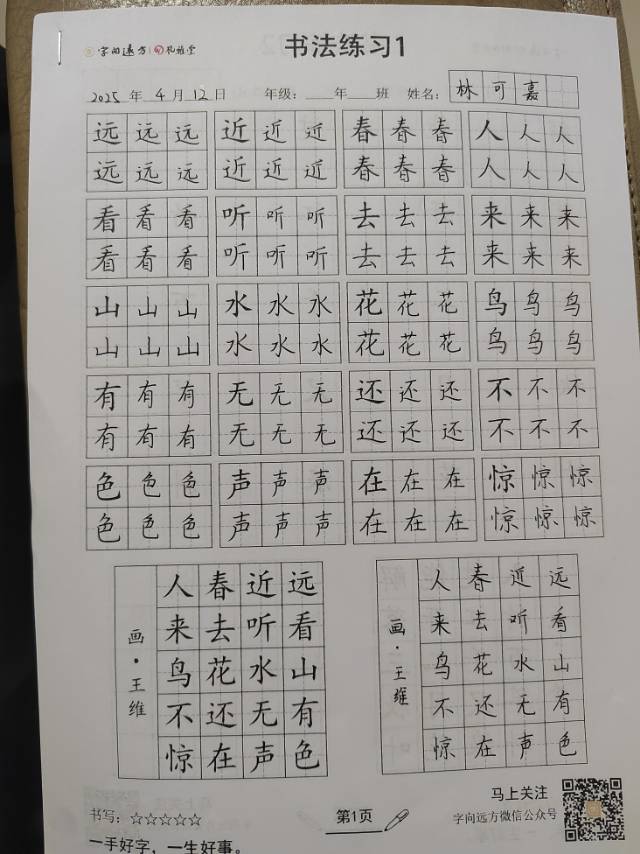 字向远方 礼雅堂
书法练习1
2025 年 4 月 12 日 年级：___年___班 姓名：林可嘉
远远远 近近近 春春春 人人人
远远远 近近近 春春春 人人人
看看看 听听听 去去去 来来来
看看看 听听听 去去去 来来来
山山山 水水水 花花花 鸟鸟鸟
山山山 水水水 花花花 鸟鸟鸟
有有有 无无无 还还还 不不不
有有有 无无无 还还还 不不不
色色色 声声声 在在在 惊惊惊
色色色 声声声 在在在 惊惊惊
画·王维
远看山有色
近听水无声
春去花还在
人来鸟不惊
画·王维
远看山有色
近听水无声
春去花还在
人来鸟不惊
书写：☆☆☆☆☆
一手好字，一生好事。
第1页
马上关注
字向远方微信公众号